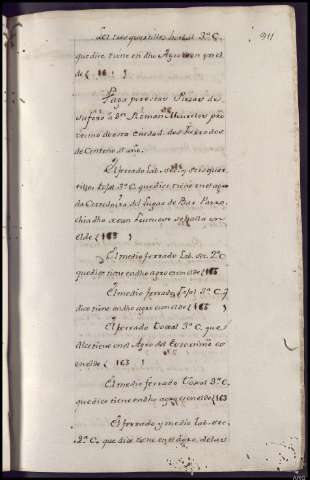 911
de tres quartillos tojal 3ª C.
que dice tiene en dho Agro
de ( 16 )
Paga por estas Piezas de
a Dn. Roman Mauriños
vecino de esta ciudad dos ferrados
de Centeno al año.
El ferrado Lab. sec. y tres quar
tillos tojal 3ª C. que dice tiene en el agro
da Corredoira, del Lugar de Bar
dho en
el de ( 163 )
El medio ferrado Lab. sec. 2ª C
que dice tiene en dho agro es en el de ( 165
El medio ferrado tojal 3ª C. q
dice tiene en dho agro es en el de ( 165 )
El ferrado tojal 3ª C. que
dice tiene en el Agro del
en el de ( 163 )
El medio ferrado tojal 3ª C.
que dice tiene en dho agro es en el de ( 163
El ferrado y medio Lab. sec.
2ª C. que dice tiene en el agro de las